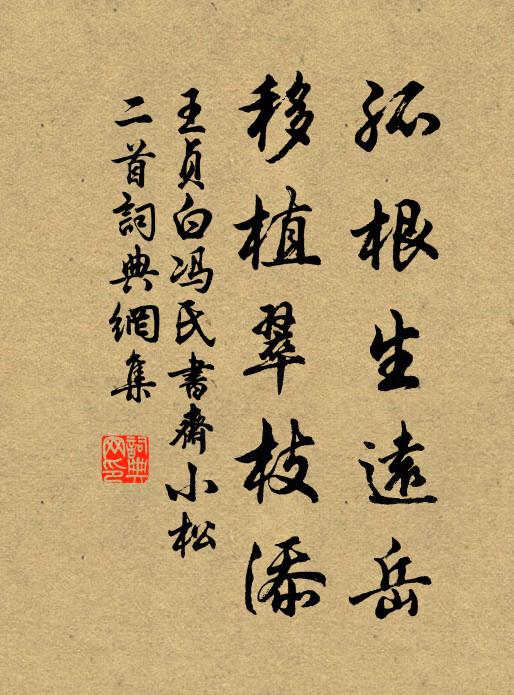 孤根生遠岳
移植翠枝添
王貞白冯氏書齋小松
二首詞典網集
詞典网印